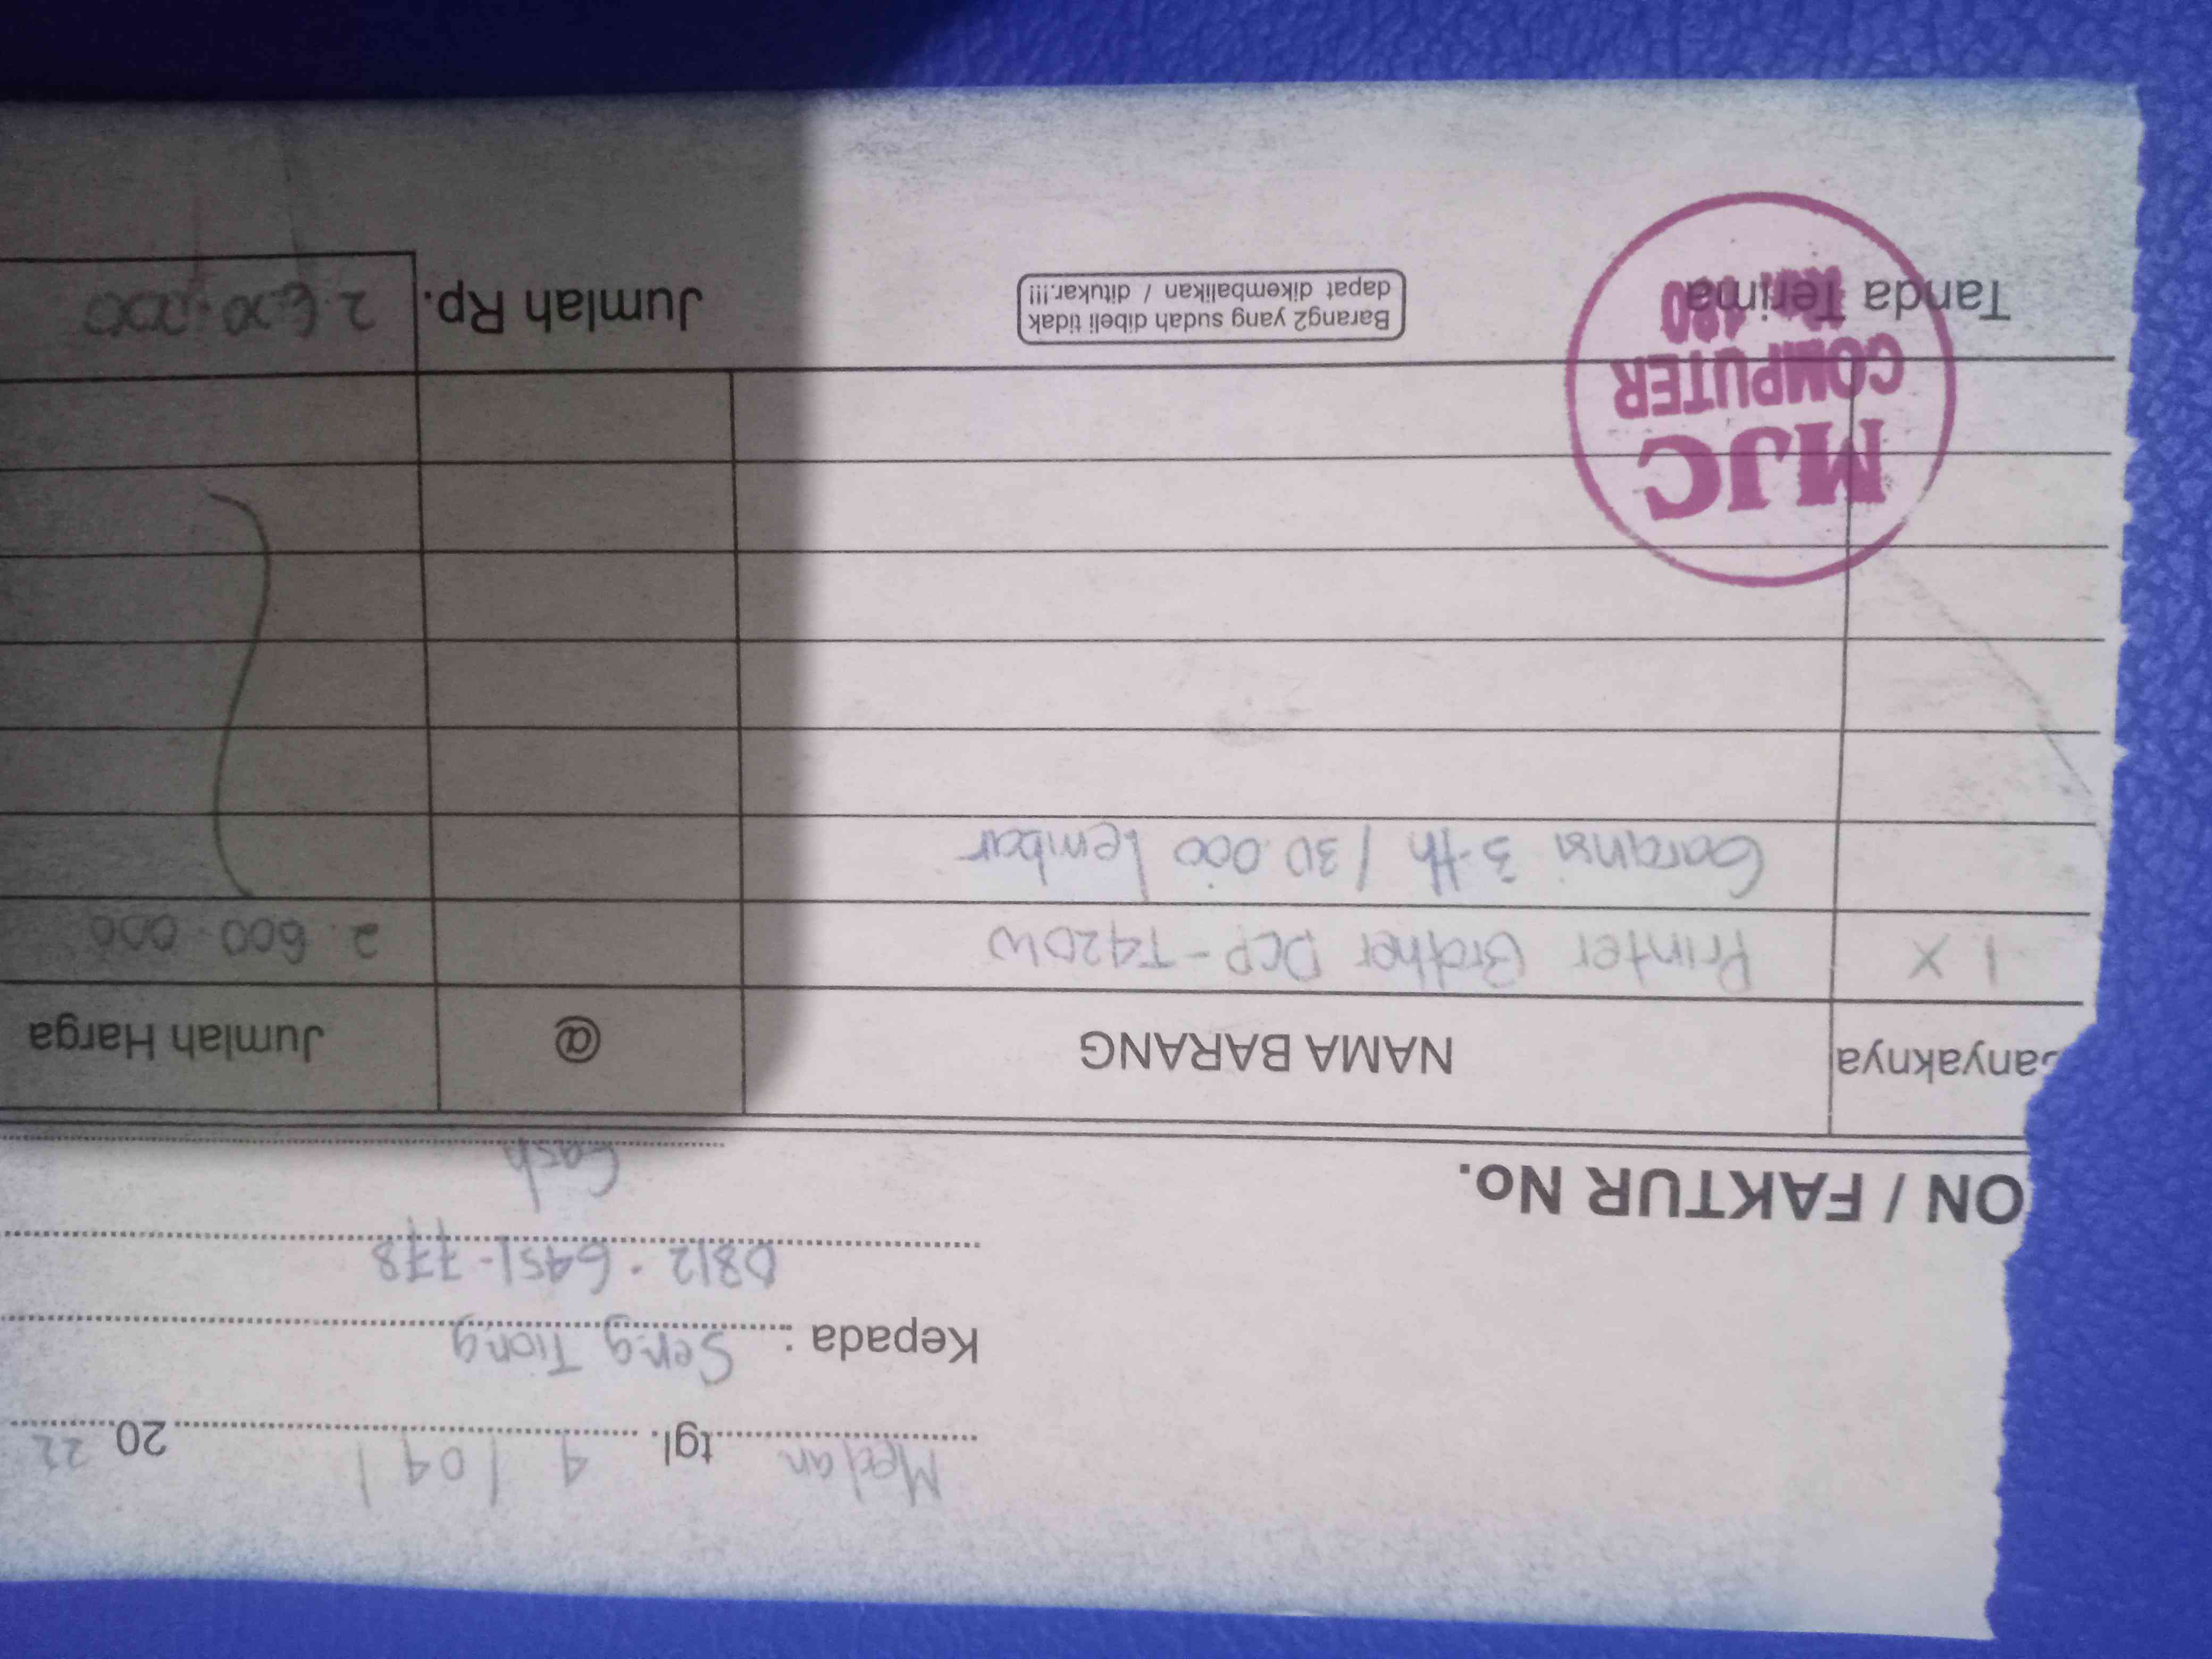 Medan tgl. 9 / 09 / 20 22
Kepada : Seng Tiong
0812 · 6451 - 778
Cash
ON / FAKTUR No.
anyaknya NAMA BARANG @ Jumlah Harga
1 X Printer Brother DCP - T420W 2 600 000
Garansi 3 th / 30.000 lembar
MJC
COMPUTER
Tanda Terima
Barang2 yang sudah dibeli tidak
dapat dikembalikan / ditukar.!!!
Jumlah Rp. 2.600.000